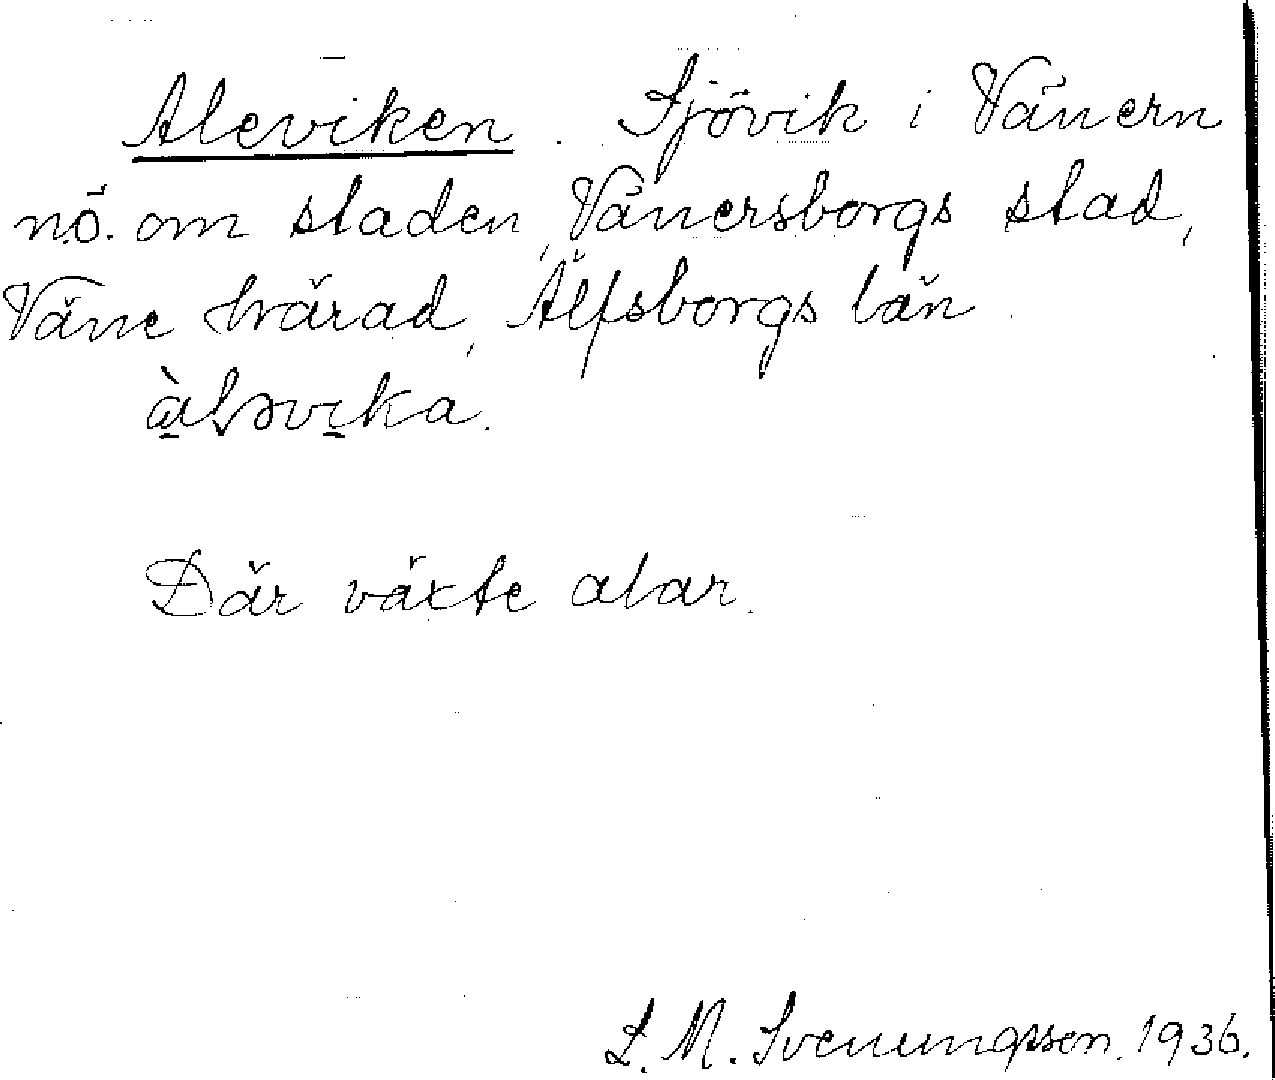 Aleviken. Sjövik i Vänern
nö. om staden, Vänersborgs stad,
Väne härad, Älfsborgs län.
àləvika.
Där växte alar.
S. M. Svenungsson. 1936.